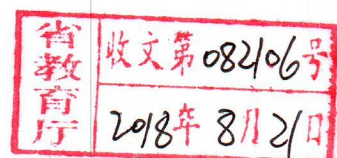 省教育厅
收文第082106号
2018年8月21日